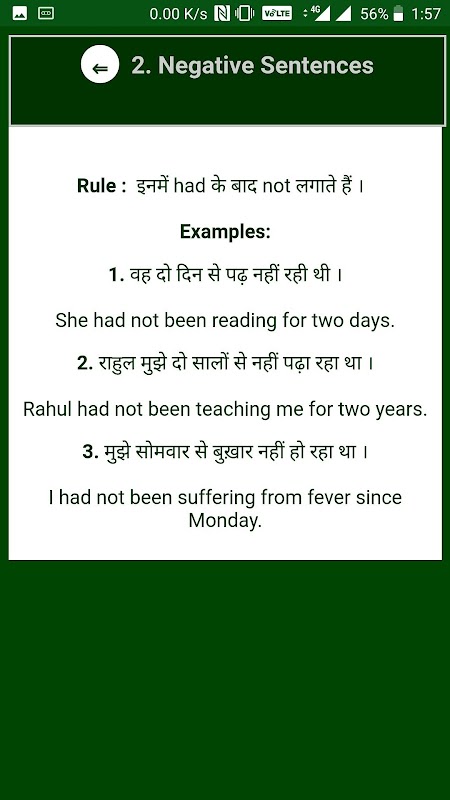 0.00 K/s 4G VoLTE 56% 1:57
⇐ 2. Negative Sentences
Rule : इनमें had के बाद not लगाते हैं ।
Examples:
1. वह दो दिन से पढ़ नहीं रही थी ।
She had not been reading for two days.
2. राहुल मुझे दो सालों से नहीं पढ़ा रहा था ।
Rahul had not been teaching me for two years.
3. मुझे सोमवार से बुख़ार नहीं हो रहा था ।
I had not been suffering from fever since
Monday.